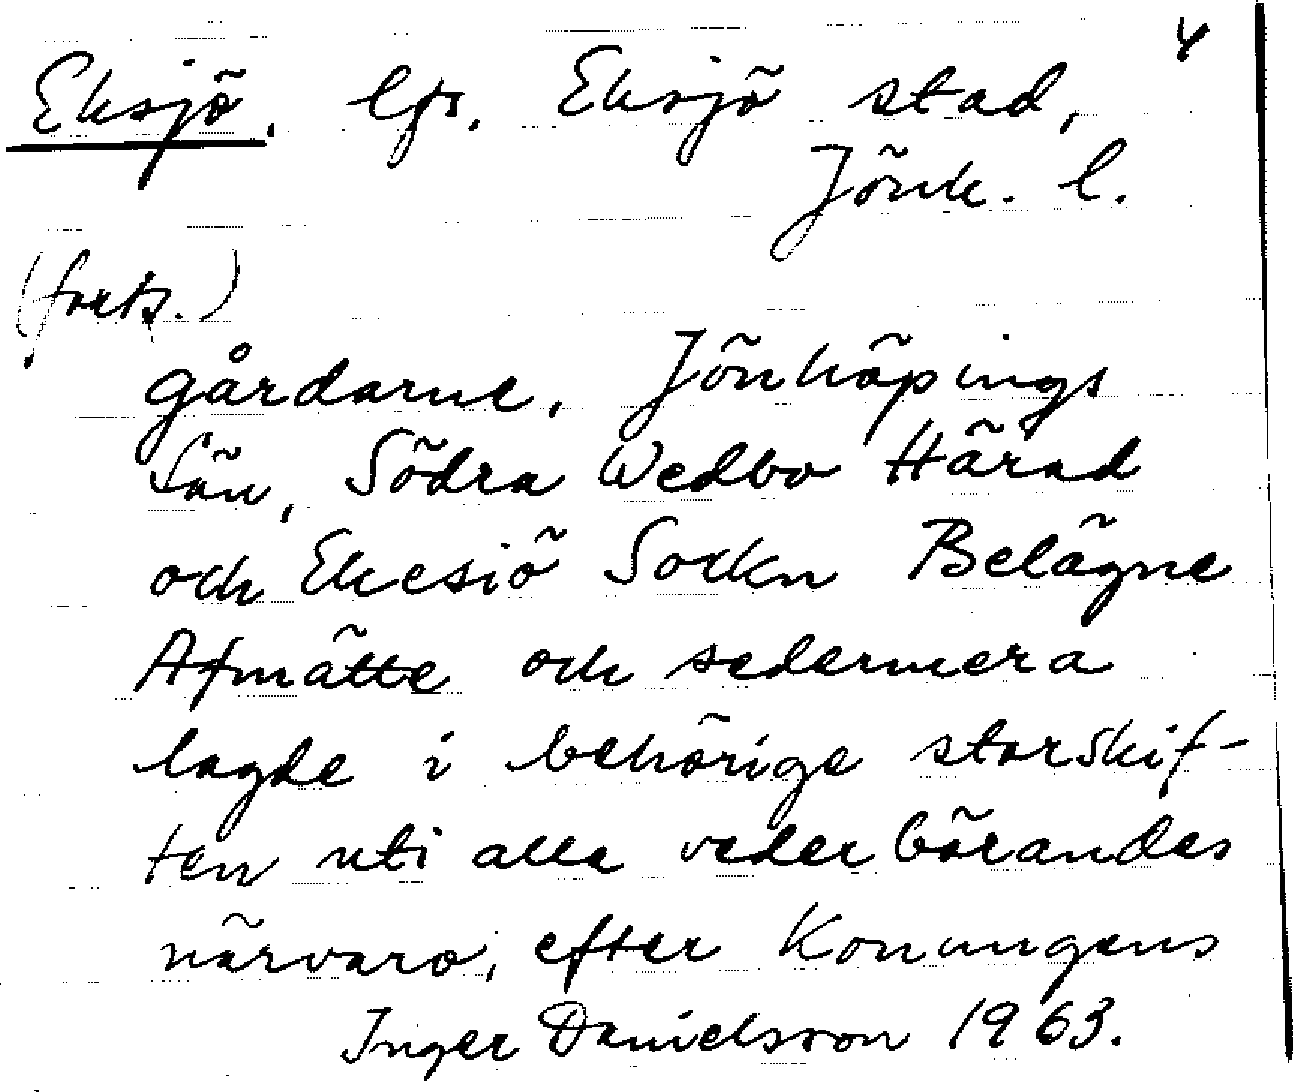 4
Eksjö. lfs. Eksjö stad,
Jönk. l.
(forts.)
gårdarne, Jönköpings
Län, Södra Wedbo Härad
och Ekesiö Sockn Belägne
Afmätte och sedermera
lagde i behörige storskif-
ten uti alla vederbörandes
närvaro, efter Konungens
Inger Danielsson 1963.